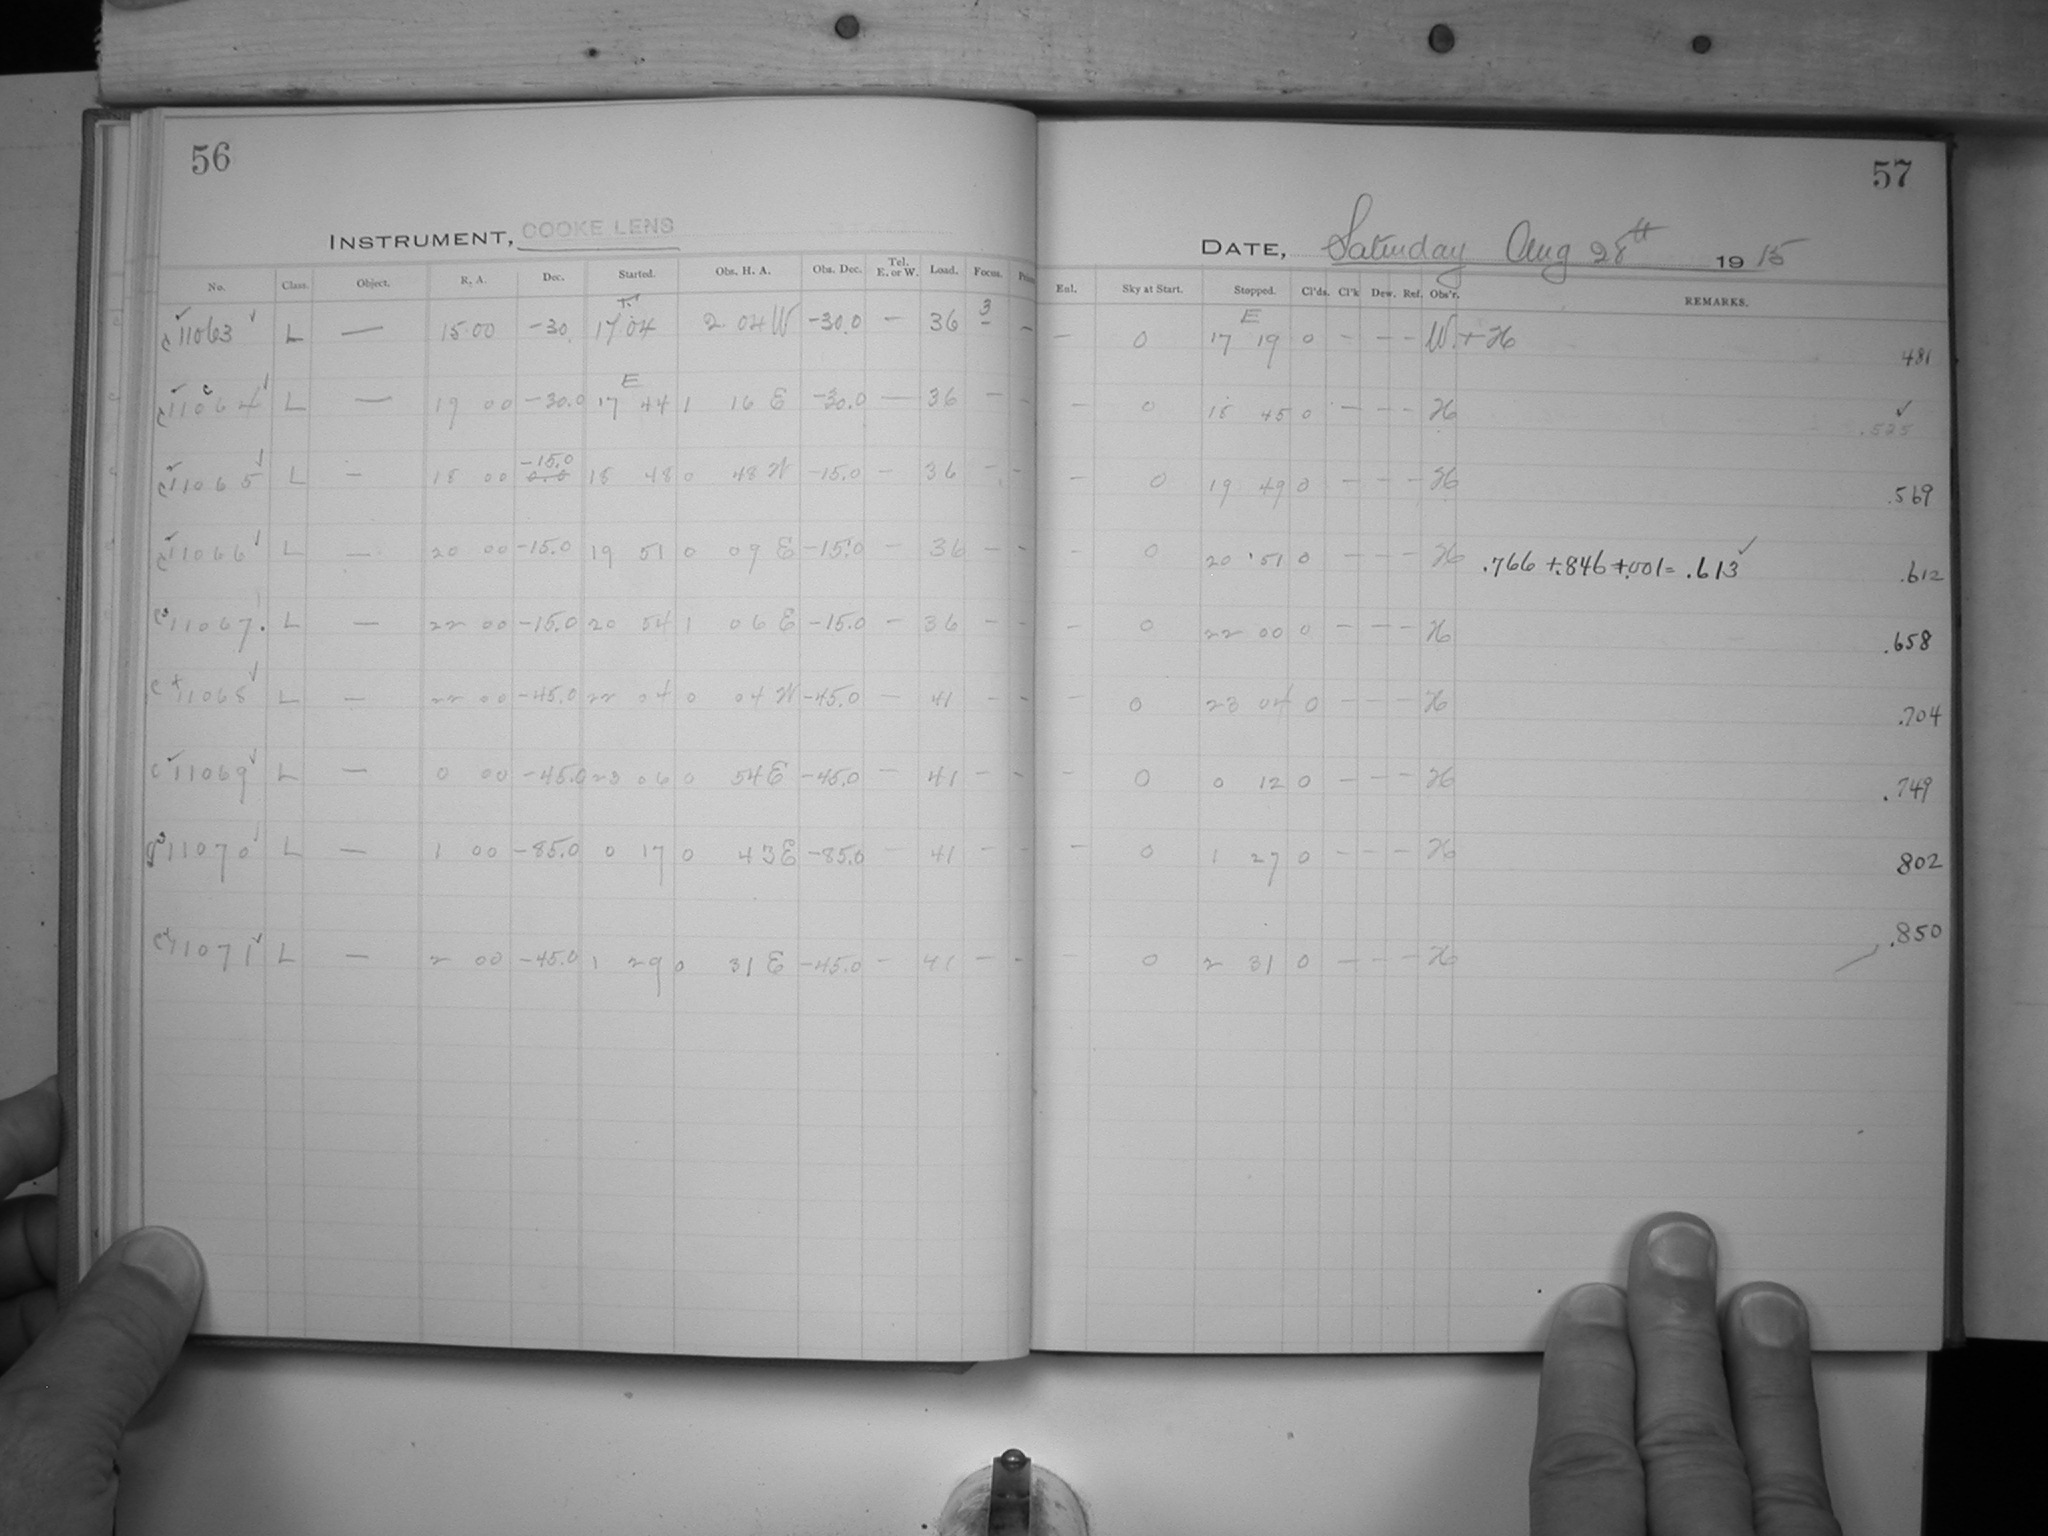 56
INSTRUMENT, COOKE LENS
No. Class. Object. R. A. Dec. Started. Obs. H. A. Obs. Dec. Tel. E. or W. Load. Focus.
11063 L — 15 00 -30. 17 04 2 04 W -30.0 — 36 3 —
E
11064 L — 19 00 -30.0 17 44 1 16 E -30.0 — 36 — -
-15.0
11065 L — 18 00 0.0 18 48 0 48 W -15.0 — 36 — -
11066 L — 20 00 -15.0 19 51 0 09 E -15.0 — 36 — -
11067. L — 22 00 -15.0 20 54 1 06 E -15.0 — 36 - -
11068 L — 22 00 -45.0 22 04 0 04 W -45.0 — 41 - -
11069 L — 0 00 -45.0 23 06 0 54 E -45.0 — 41 - -
11070 L — 1 00 -85.0 0 17 0 43 E -85.0 — 41 - -
11071 L — 2 00 -45.0 1 29 0 31 E -45.0 — 41 - -
57
DATE, Saturday Aug 28th 1915
Enl. Sky at Start. Stopped. Cl'ds. Cl'k Dew. Ref. Obs'r. REMARKS.
E
— 0 17 19 0 - - - W. + H 481
— 0 18 45 0 - - - H ✓ .525
— 0 19 49 0 - - - H .569
- 0 20 51 0 - - - H .766 + .846 + .001 = .613 ✓ .612
- 0 22 00 0 - - - H .658
- 0 23 04 0 - - - H .704
- 0 0 12 0 - - - H .749
- 0 1 27 0 - - - H 802
- 0 2 31 0 - - - H .850